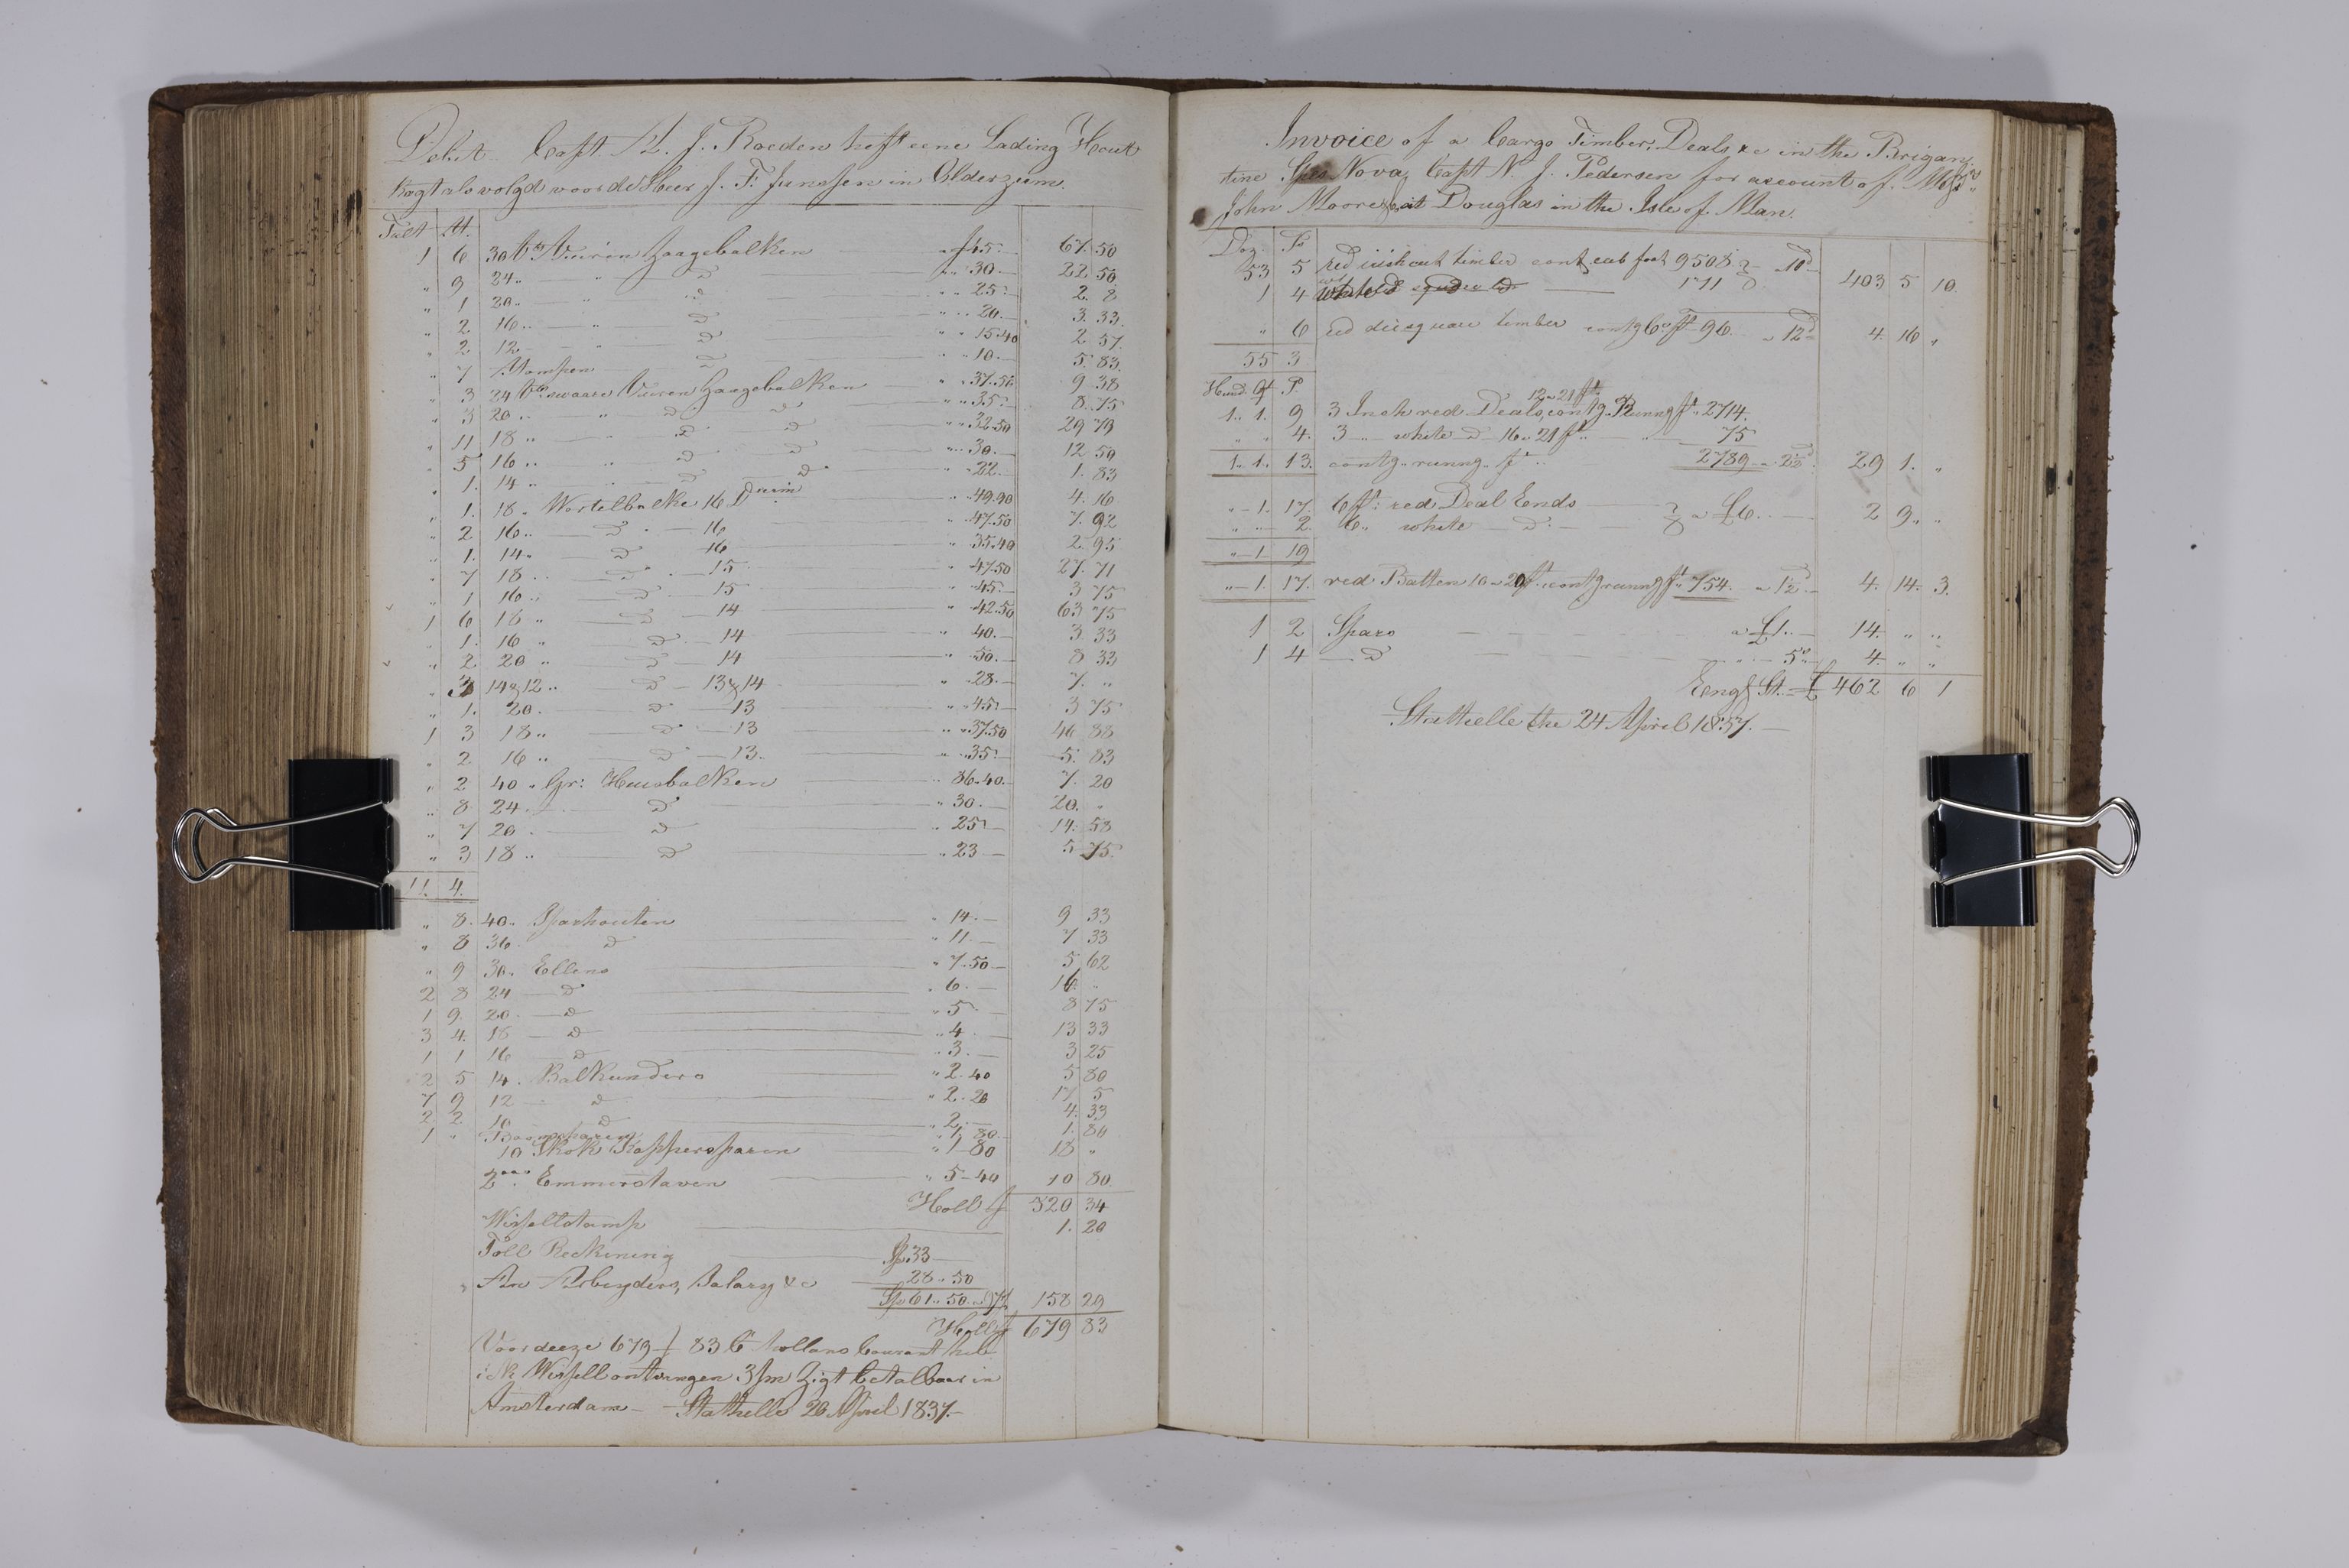 Debit Capt. K. J. Roeden heft eene Lading Hout
kogt als volgd voor de Heer J. F. Janssen in Olderzum
Tült St.
1 6 30 Vt Vuiren Zaagebalken f 45.— 67. 50
„ 9 24 „ — „ — d° „ 30.— 22 50
„ 1 20 „ „ d° „ 25.— 2. 8
„ 2 16 „ — „ — d° „ 20.— 3. 33
„ 2 12 — „ — d° „ 15.40 2 57
„ 7 Stompen — d° „ 10.— 5. 83
„ 3 24 Vt swaare Vuiren Zaagebalken „ 37.50 9 38
„ 3 20 „ „ d° d° „ 35.— 8. 75
„ 11 18 „ — „ d° d° „ 32.50 29 79
„ 5 16 „ „ d° d° „ 30.— 12 50
„ 1. 14 „ „ d° d° „ 22.— 1. 83
„ 1. 18 „ Wortelbalke 16 Duim „ 49.90 4. 16
„ 2. 16 „ — d° — 16 „ 47.50 7. 92
„ 1. 14 „ d° 16 „ 35.40 2. 95
„ 7 18 „ — d° — 15 „ 47.50 27. 71
„ 1 16 „ — d° — 15 „ 45.— 3 75
1 6 18 „ — d° — 14 „ 42.50 63 75
„ 1. 16 „ d° — 14 „ 40.— 3. 33
„ 2 20 „ d° — 14 „ 50.— 8 33
„ 3 14 & 12 „ d° — 13 & 14 „ 28.— 7. „
„ 1. 20. d° — 13 „ 45.— 3 75
1 3 18 „ d° — 13 „ 37.50 46 88
„ 2 16 „ d° — 13. „ 35.— 5. 83
„ 2 40 „ Gr: Heuvbalken „ 86.40.— 7. 20
„ 8 24 „ d° „ 30.— 20. „
„ 7 20 „ d° „ 25.— 14. 58
„ 3 18 „ d° „ 23 — 5 75
11. 4.
„ 8. 40 „ Sparhouten „ 14.— 9 33
„ 8 36 d° „ 11.— 7 33
„ 9 30 „ Ellens „ 7.50— 5 62
2 8 24 — d° „ 6.— 16 „
1 9. 20 — d° „ 5.— 8 75
3 4. 18 — d° „ 4— 13 33
1 1 16 — d° „ 3.— 3 25
2 5 14. Balkunders „ 2.40 5 80
7 9 12 — d° „ 2.20 17 5
2 2 10 d° „ 2.— 4. 33
1 „ Boomsparen „ 1. 80.— 1. 80
10 Skok Kapperspaaren „ 1—80 18 „
2 „ Emmerstaven „ 5—40 10 80.
Holl f 520 34
Wisselstamp 1. 20
Toll Reckening Sp. 33
An Arbeyders, Salary &c 28 „ 50
Sp 61 „ 50 158 29
Holl f 679 83
Voor deeze 679 f 83 C hollans Courant heb
ick Wissell ontvangen 3/m Zigt betalbaar in
Amsterdam — Stathelle 26 April 1837.—
Invoice of a Cargo Timber, Deals &c in the Brigan-
tine Spes Nova, Capt N. J. Pedersen for account of Messrs
John Moore & at Douglas in the Isle of Man.
Doz. Ps
53 5 red timber contg cub feet 9508 } a 10d
1 4 white d° 171 } 403 5 10.
„ 6 red diesquare timber contg Cub ft 96 — „ 12d 4. 16 „
55 3
Hund. Qr P.
12 a 21 ft
1. 1. 9 3 Inch red Deals contg. Runng ft 2714.
„ „ 4. 3 „ white d° 16 a 21 ft — „ 75
1. 1. 13. contg runng ft „ 2789 a 2½d 29 1. „
„—1. 17. 6 ft red Deal Ends }
„ „ 2. 6 „ white — d° — } a £6 — 2 9 „ „
„—1 19
„—1. 17. red Batten 10 a 20 ft contg runng ft 754. a 1½d— 4. 14. 3.
1 2 Spars a £1.— 14. „ „
1 4 — d° „ — 5s 4. „ „
Engl St. £ 462 6 1
Stathelle the 24 April 1837.—